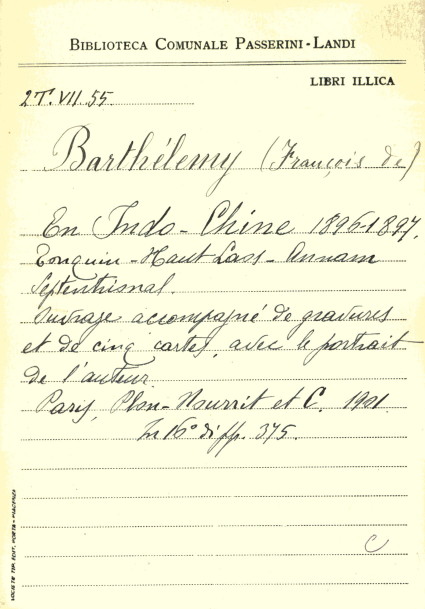 BIBLIOTECA COMUNALE PASSERINI-LANDI
LIBRI ILLICA
2T.VII.55
Barthélemy (François de)
En Indo-Chine 1896-1897.
Tonquin-Haut Laos-Annam
Septentrional.
Ouvrage accompagné de gravures
et de cinq cartes, avec le portrait
de l'auteur.
Paris, Plon-Nourrit et C. 1901
In 16° di pp. 375.
C